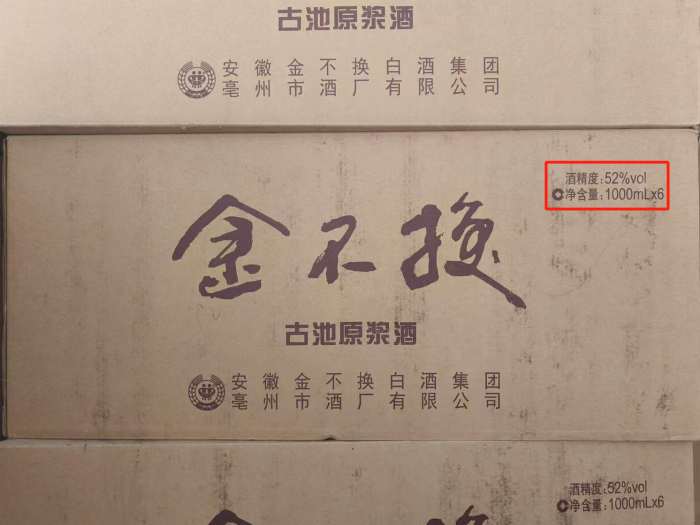 古池原浆酒
安徽金不换白酒集团
亳州市酒厂有限公司
酒精度:52%vol
净含量:1000mLx6
金不换
古池原浆酒
安徽金不换白酒集团
亳州市酒厂有限公司
酒精度:52%vol
净含量:1000mLx6